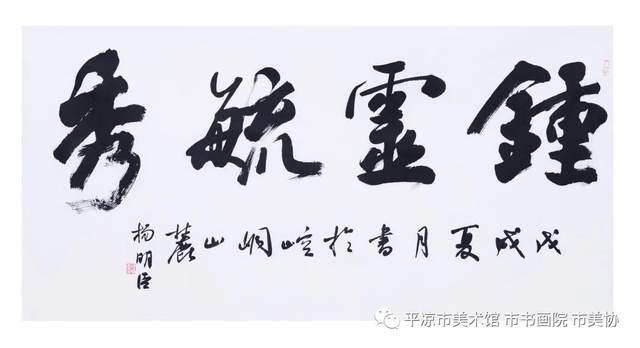 鍾靈毓秀
戊戌夏月書於崆峒山麓
杨明臣
平凉市美术馆 市书画院 市美协